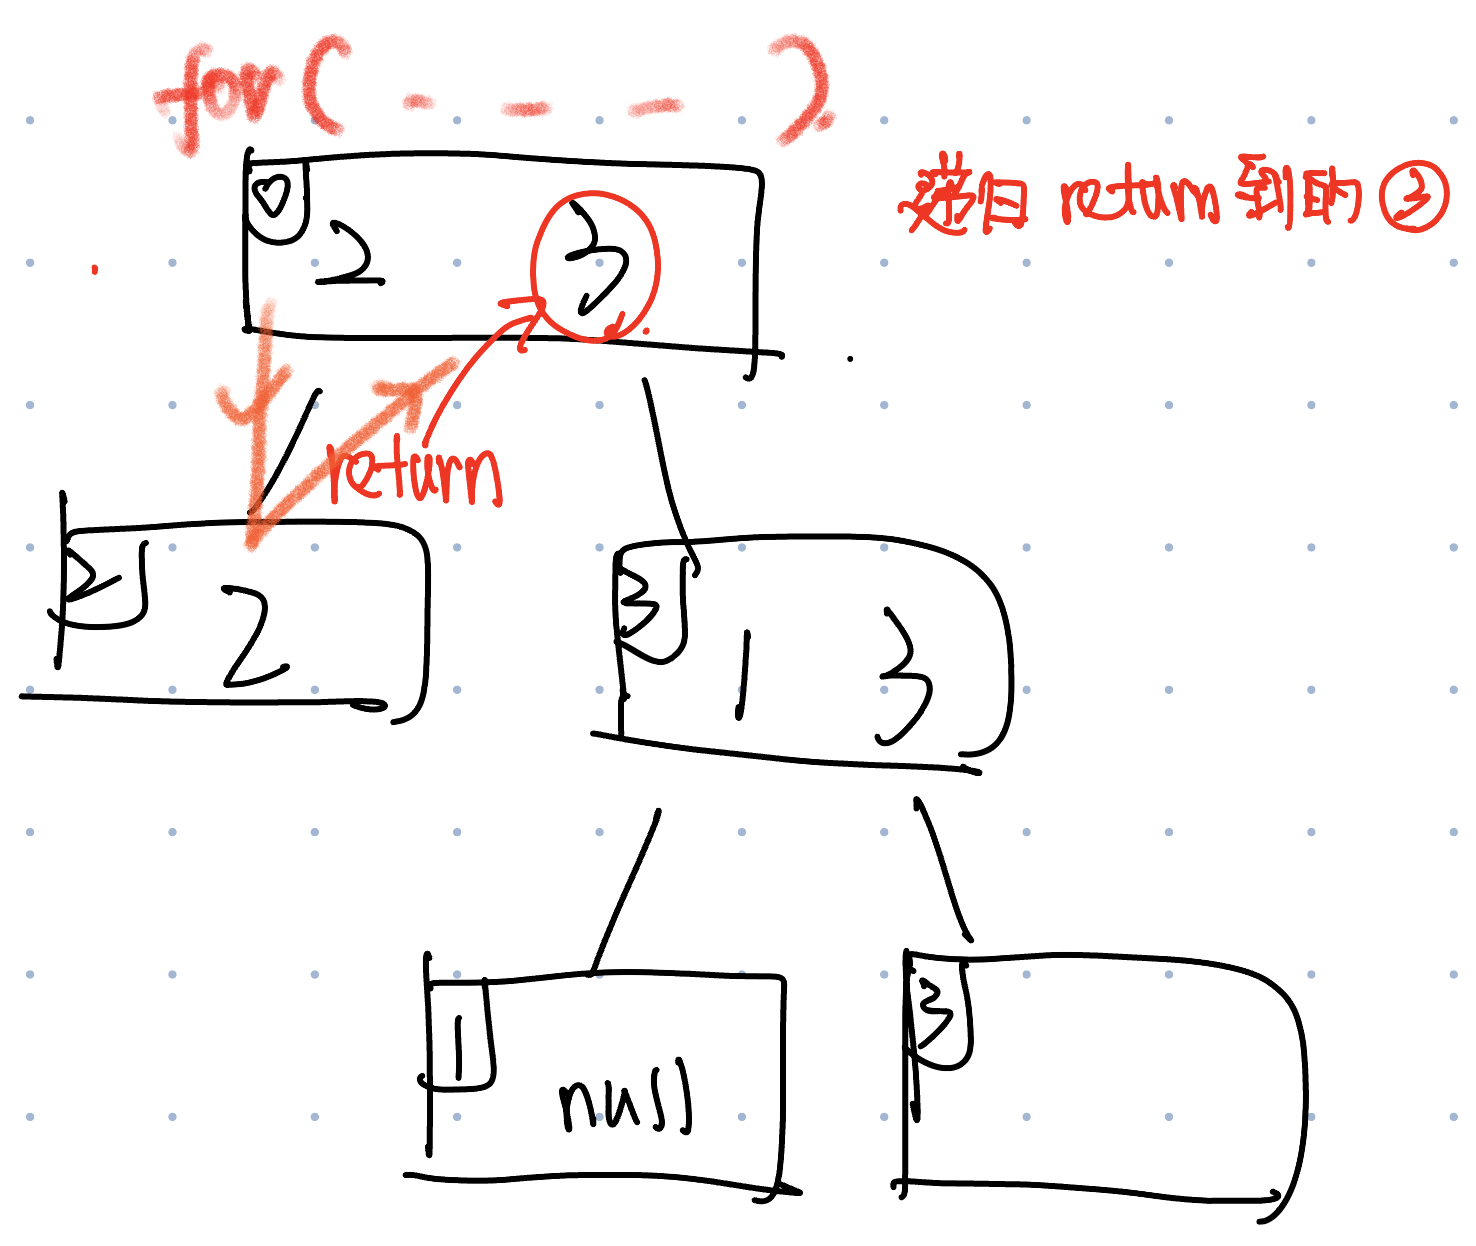 for( - - - ).
递归 return 到的 ③
0
2 3
return
2
2
3
1 3
1
null
3